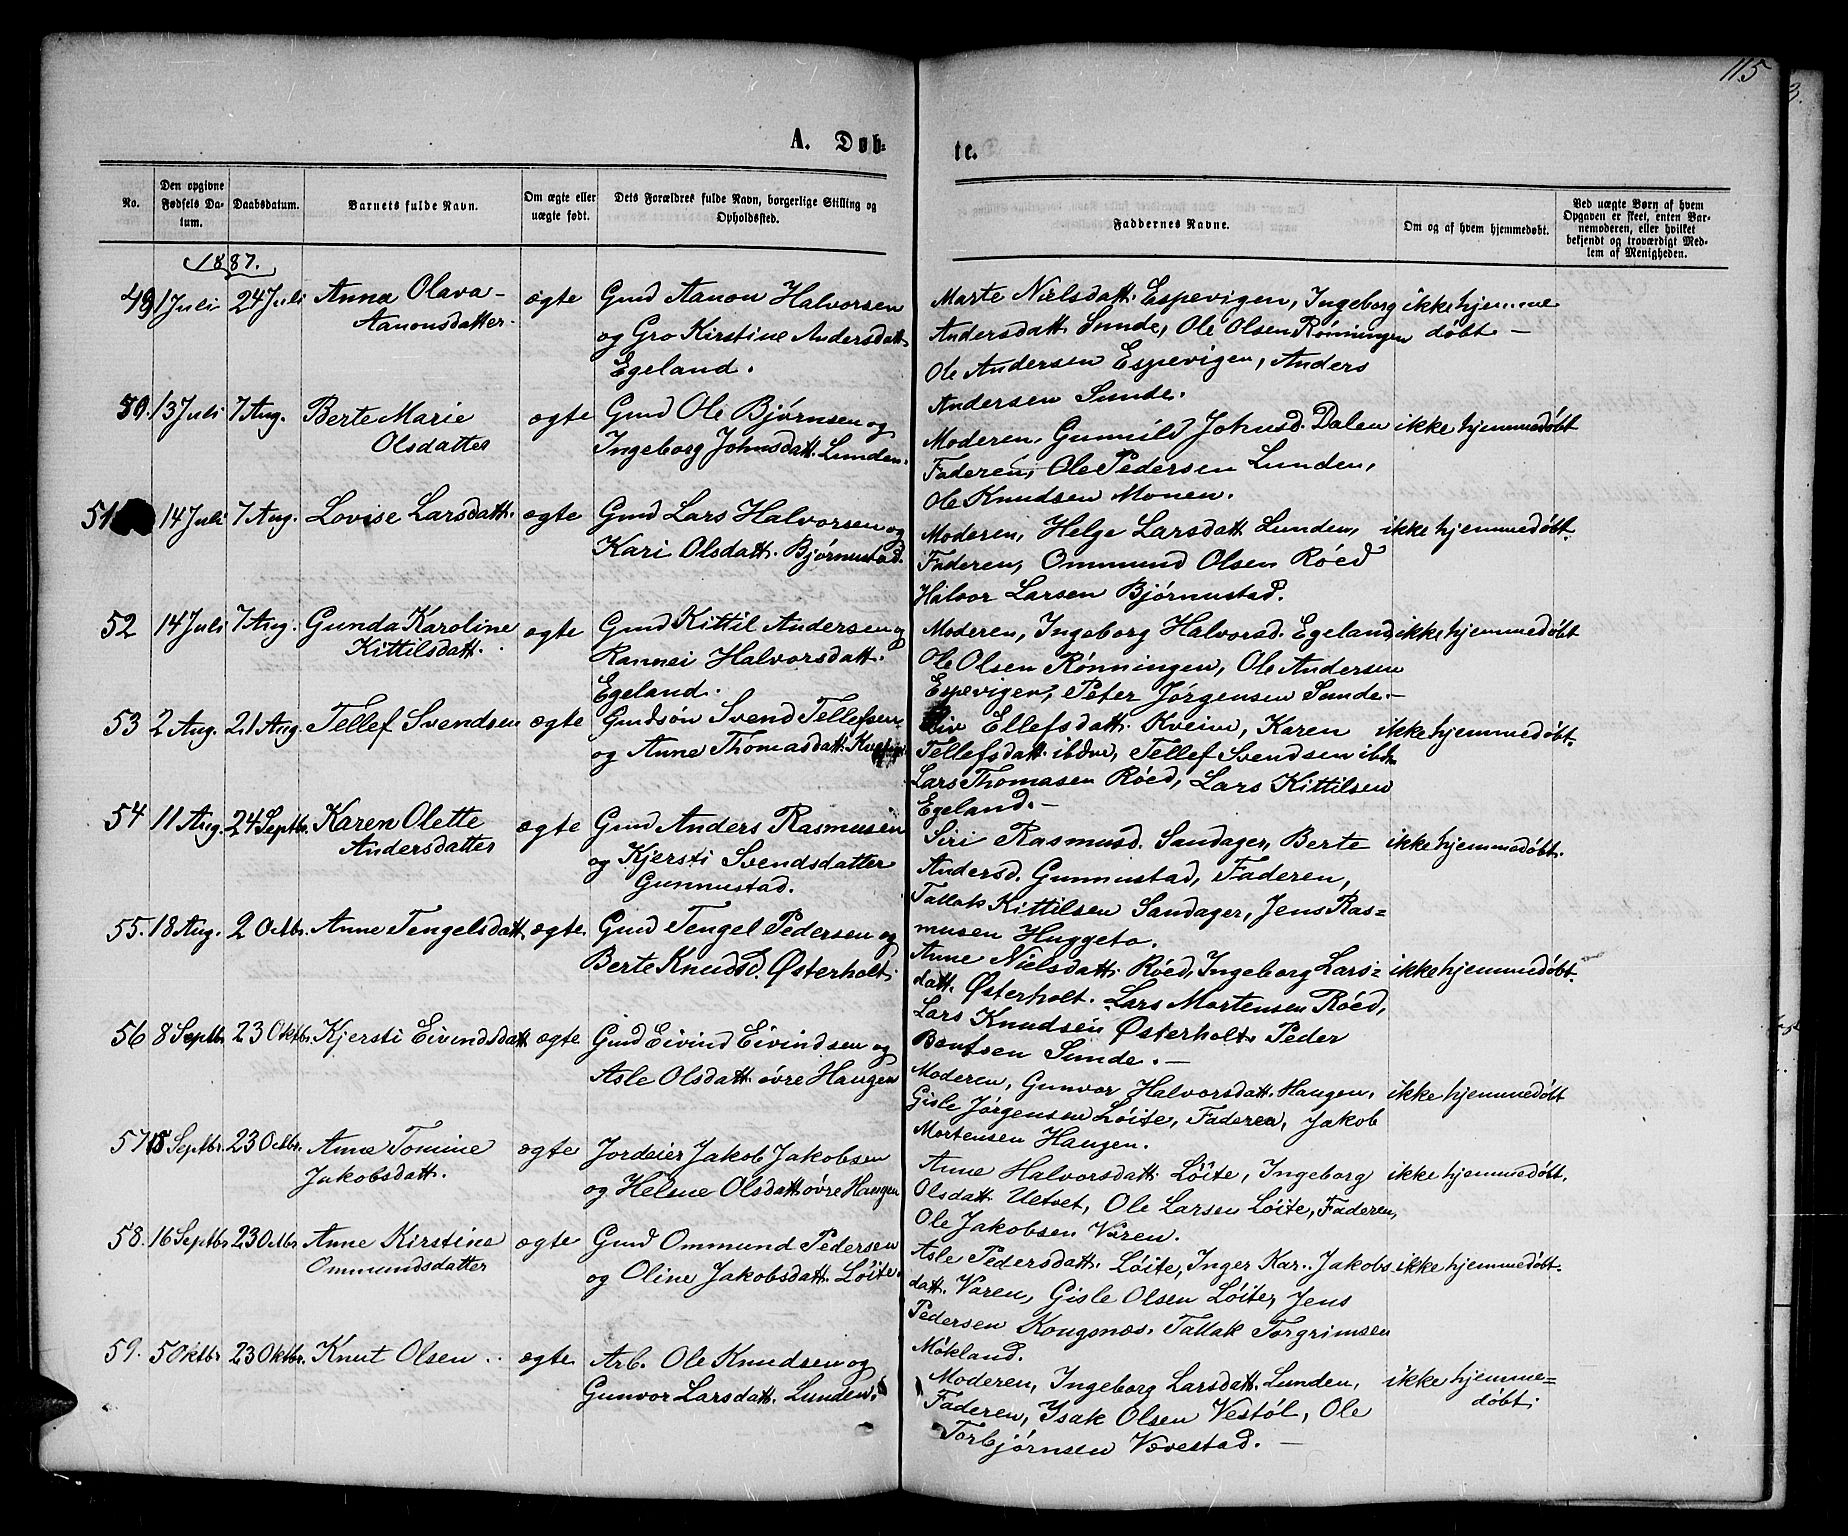 115
3.
A. Døb-
te.
No.
Den opgivne Fødsels Datum.
Daabsdatum.
Barnets fulde Navn.
Om ægte eller uægte født.
Dets Forældres fulde Navn, borgerlige Stilling og Opholdssted.
Faddernes Navne.
Om og af hvem hjemmedøbt.
Ved uægte Børn af hvem Opgaven er skeet, enten Barnemoderen, eller hvilket bekjendt og troværdigt Medlem af Menigheden.
1887.
49 1 Juli 24 Juli Anna Olava
Aanonsdatter.
ægte
Gmd Aanon Halvorsen
og Gro Kirstine Andersdatt.
Egeland.
Marte Nielsdatt. Espevigen, Ingeborg
Andersdatt. Sunde, Ole Olsen Rønningen
Ole Andersen Espevigen, Anders
Andersen Sunde.
ikke hjemme
døbt —
50. 13 Juli 7 Aug. Berte Marie
Olsdatter
ægte
Gmd Ole Bjørnsen og
Ingeborg Johnsdatt. Lunden.
Moderen, Gunnild Johnsd. Dalen
Faderen, Ole Pedersen Lunden,
Ole Knudsen Monen.
ikke hjemmedøbt
51 14 Juli 7 Aug. Lovise Larsdatt.
ægte
Gmd Lars Halvorsen og
Kari Olsdatt. Bjørnustad.
Moderen, Helge Larsdatt. Lunden,
Faderen, Ommund Olsen Røed
Halvor Larsen Bjørnustad.
ikke hjemmedøbt.
52 14 Juli 7 Aug. Gunda Karoline
Kittilsdatt.
ægte
Gmd Kittil Andersen og
Rannei Halvorsdatt.
Egeland.
Moderen, Ingeborg Halvorsd. Egeland,
Ole Olsen Rønningen, Ole Andersen
Espevigen, Peter Jørgensen Sunde.—
ikke hjemmedøbt
53 2 Aug. 21 Aug. Tellef Svendsen
ægte
Gmdsøn Svend Tellefsen
og Anne Thomasdatt.
Liv Ellefsdatt. Kveim, Karen
Tellefsdatt. ibdm, Tellef Svendsen ibdm
Lars Thomasen Røed, Lars Kittilsen
Egeland.—
ikke hjemmedøbt.
54 11 Aug. 24 Septbr. Karen Olette
Andersdatter
ægte
Gmd Anders Rasmusen
og Kjersti Svendsdatter
Gunnustad.
Siri Rasmusd. Sandager, Berte
Andersd. Gunnustad, Faderen,
Tallak Kittilsen Sandager, Jens Ras=
musen Huggeto.
ikke hjemmedøbt.
55. 18 Aug. 2 Octbr. Anne Tengelsdatt.
ægte.
Gmd Tengel Pedersen og
Berte Knudsd. Østerholt.
Anne Nielsdatt. Røed, Ingeborg Lars=
datt. Østerholt. Lars Mortensen Røed,
Lars Knudsen Østerholt. Peder
Bentsen Sunde.—
ikke hjemmedøbt.
56 8 Septbr 23 Oktbr. Kjersti Eivindsdatt.
ægte
Gmd Eivind Eivindsen og
Asle Olsdatt. øvre Haugen
Moderen, Gunvor Halvorsdatt. Haugen,
Gisle Jørgensen Løite, Faderen, Jakob
Mortensen Haugen.
ikke hjemmedøbt
57 15 Septbr. 23 Octbr. Anne Tomine
Jakobsdatt.
ægte
Jordeier Jakob Jakobsen
og Helene Olsdatt. øvre Haugen
Anne Halvorsdatt. Løite, Ingeborg
Olsdatt. Uetvet, Ole Larsen Løite, Faderen,
Ole Jakobsen Varen.
ikke hjemmedøbt.
58. 16 Septbr. 23 Octbr. Anne Kirstine
Ommundsdatter
ægte
Gmd Ommund Pedersen
og Oline Jakobsdatt. Løite.
Asle Pedersdatt. Løite, Inger Kar. Jakobs
datt. Varen, Gisle Olsen Løite, Jens
Pedersen Kongsnæs. Tallak Torgrimsen
Møkland.
ikke hjemmedøbt.
59. 5 Oktbr 23 Oktbr. Knut Olsen
ægte
Arb. Ole Knudsen og
Gunvor Larsdatt. Lunden.
Moderen, Ingeborg Larsdatt. Lunden,
Faderen, Isak Olsen Vestøl, Ole
Torbjørnsen Vævestad.—
ikke hjemme=
døbt.